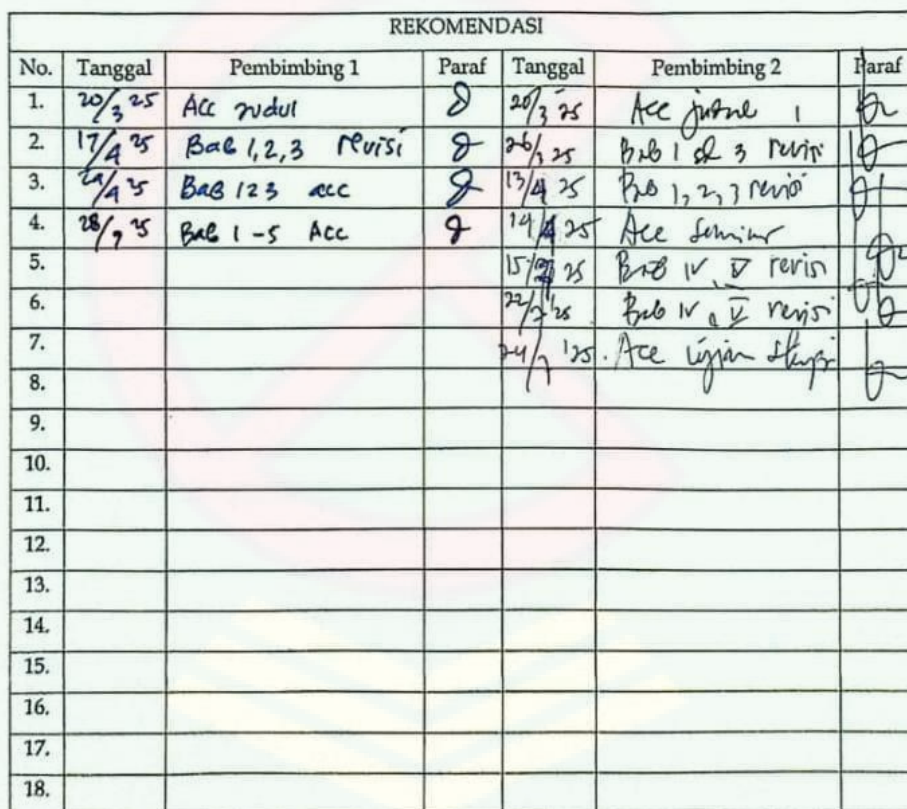 REKOMENDASI
No. Tanggal Pembimbing 1 Paraf Tanggal Pembimbing 2 Paraf
1. 20/3 25 Acc judul 20/3 25 Acc judul 1
2. 17/4 25 Bab 1, 2, 3 revisi 26/3 25 Bab 1 sd 3 revisi
3. /4 25 Bab 1 2 3 acc 13/4 25 Bab 1, 2, 3 revisi
4. 28/7 25 Bab 1 - 5 Acc 14/4 25 Acc Seminar
5. 15/ 25 Bab IV, V revisi
6. 22/7 '25 Bab IV, V revisi
7. 24/7 '25. Acc ujian skripsi
8.
9.
10.
11.
12.
13.
14.
15.
16.
17.
18.